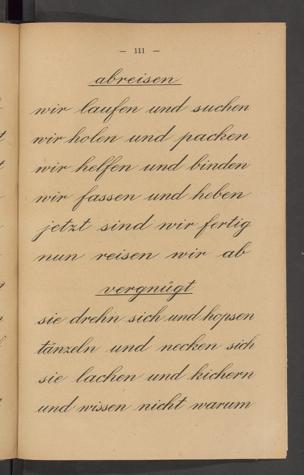 — 111 —
abreisen
wir laufen und suchen
wir holen und packen
wir helfen und binden
wir fassen und heben
jetzt sind wir fertig
nun reisen wir ab
vergnügt
sie drehn sich und hopsen
tänzeln und necken sich
sie lachen und kichern
und wissen nicht warum